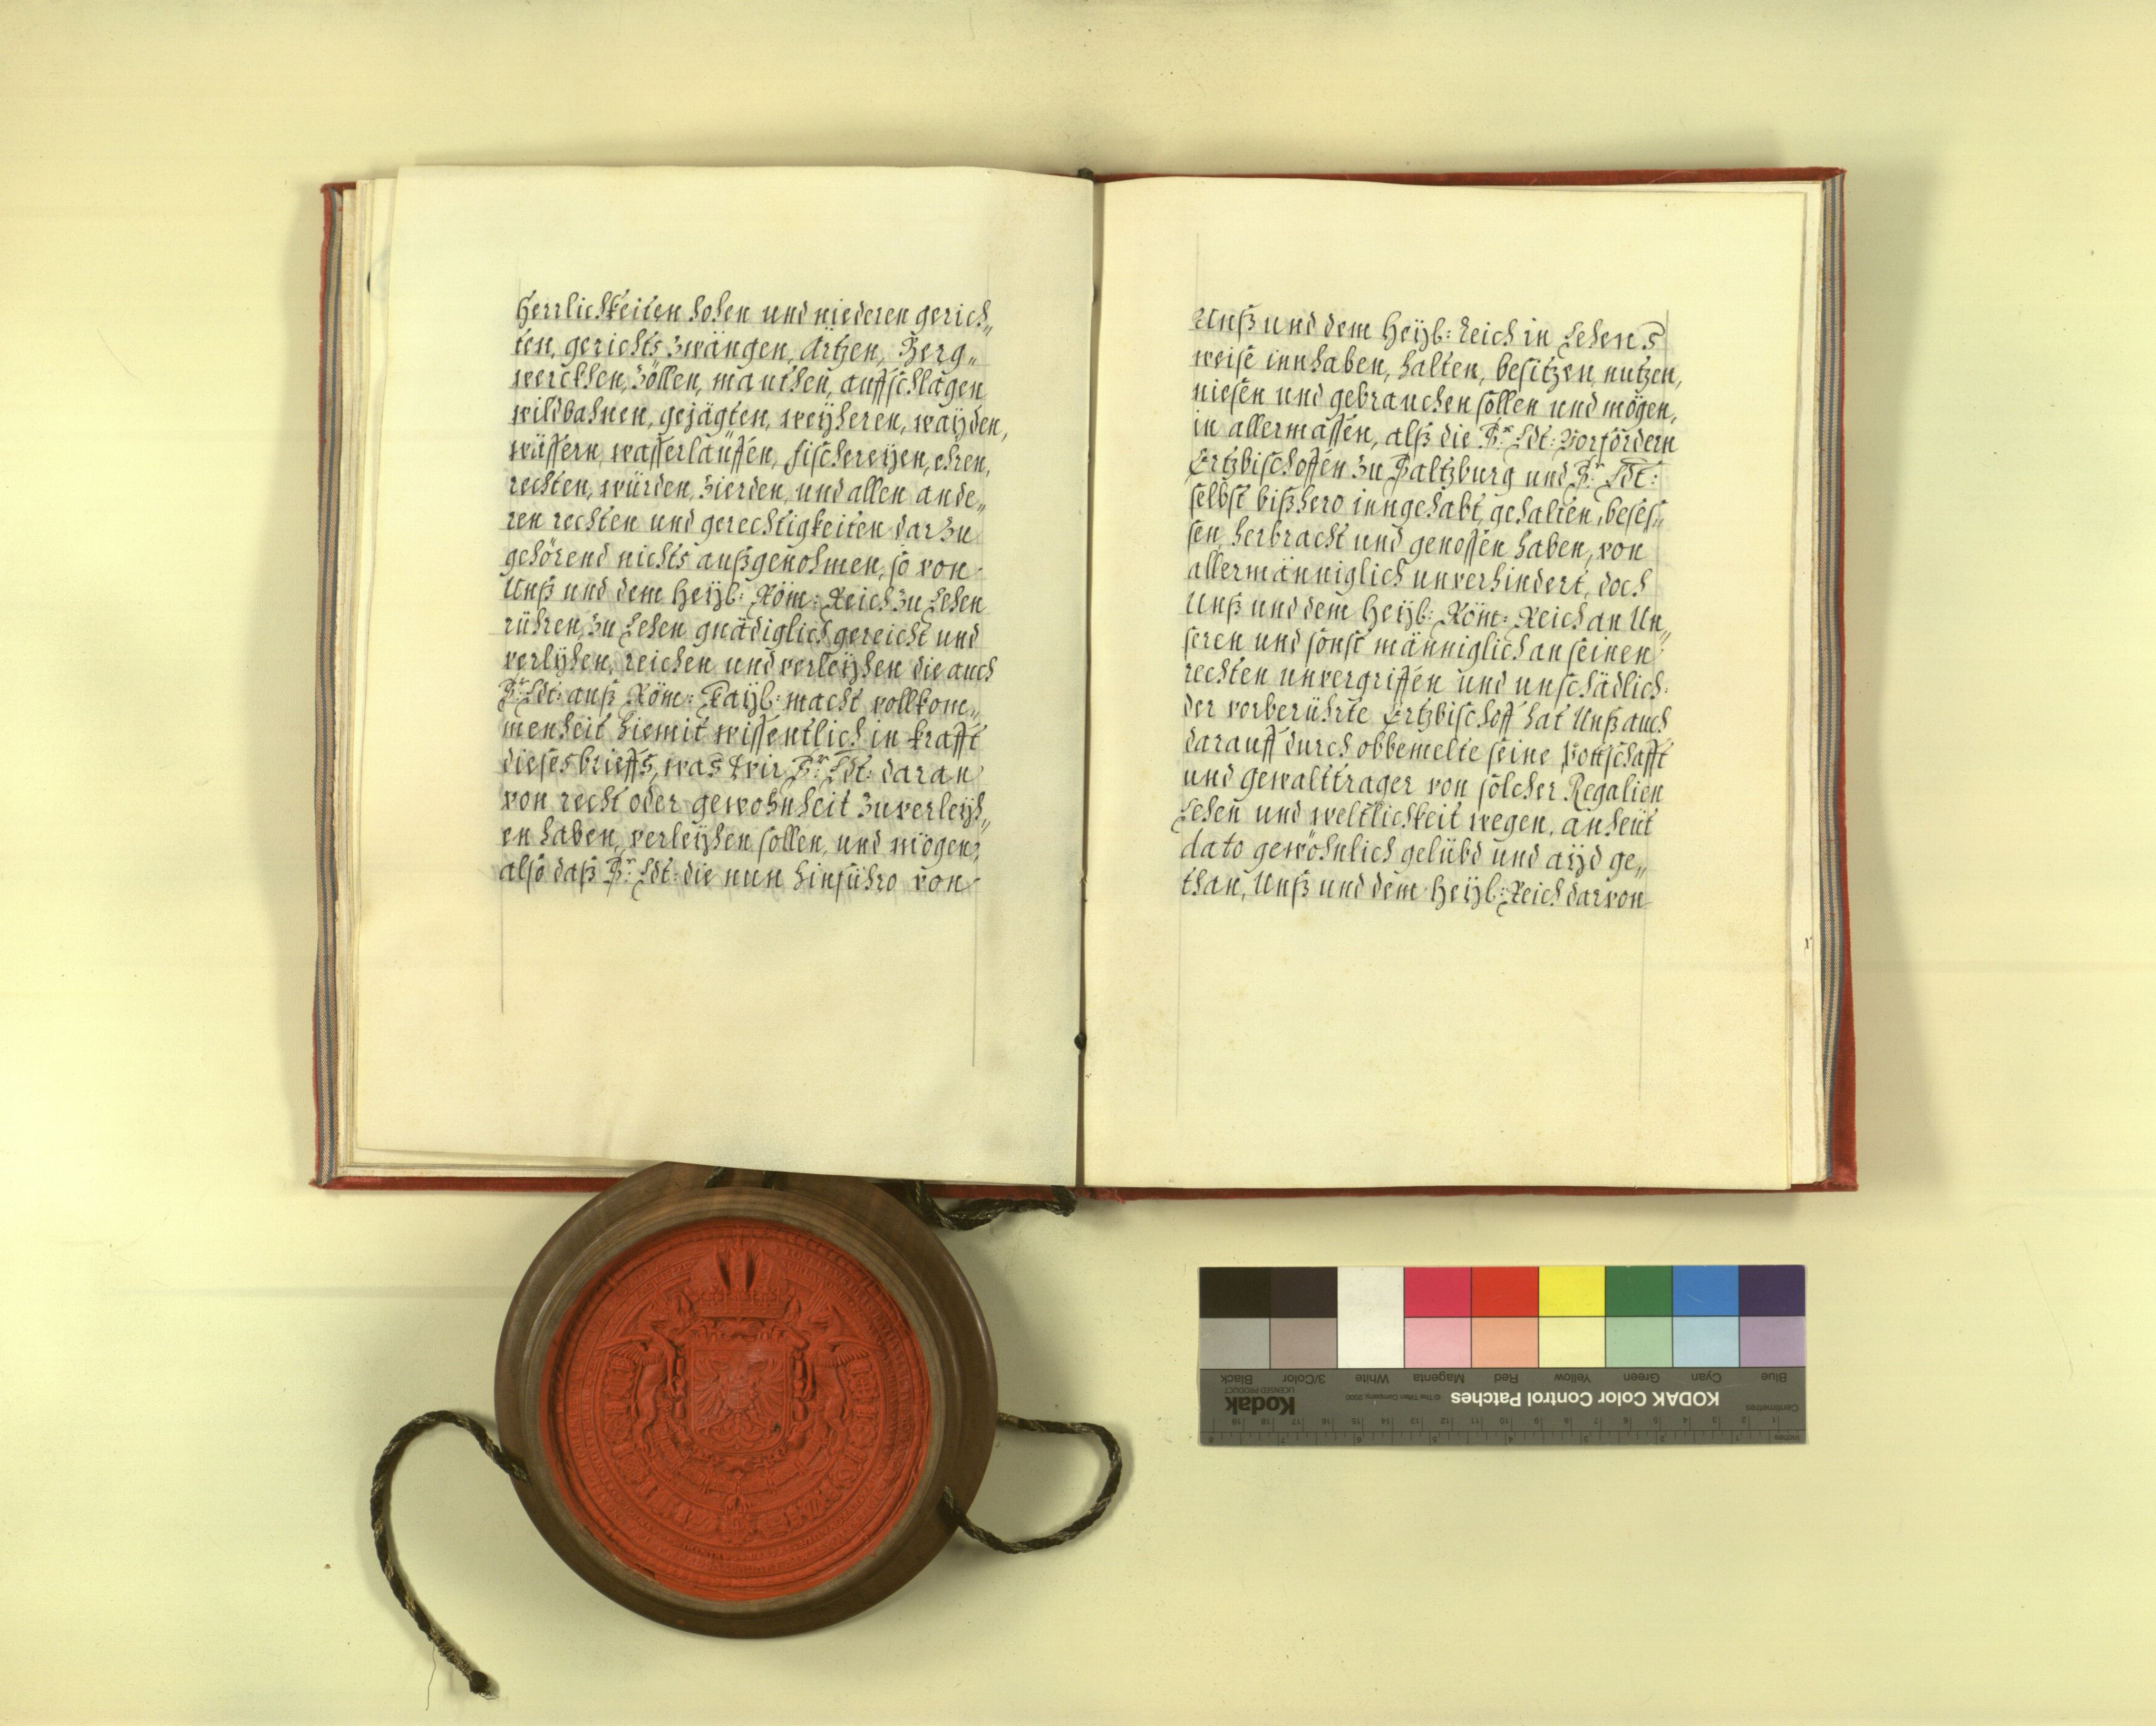 Herrlichkeiten hohen und niederen gerich„
ten, gerichts zwängen, ärtzen, Berg„
werckhen, zöllen, mauthen, auffschlägen
wildbahnen, gejägten, weÿheren, waÿden,
wässern, wasserläuffen, fischereÿen, ehren,
rechten, würden, zierden, und allen ande„
ren rechten und gerechtigkeiten darzu
gehörend nichts außgenohmen, so von
Unß und dem Heÿl: Röm: Reich zu Lehen
rühren, zu Lehen gnädiglich gereicht und
verlÿhen, reichen und verleÿhen die auch
Sr: Ldt: auß Röm: Kaÿl: macht vollkom„
menheit hiemit wissentlich in krafft
dieses brieffs, was wir Sr: Ldt: daran
von recht oder gewohnheit zuverleÿh„
en haben, verleÿhen sollen, und mögen,
also daß Sr: Ldt: die nun hinführo von
Unß und dem Heÿl: Reich in Lehens
weise innhaben, halten, besitzen, nutzen,
niesen und gebrauchen sollen und mögen,
in allermassen, alß die Sr: Ldt: Vorfordern
Ertzbischoffen zu Saltzburg und Sr: Ldt:
selbst bißhero inngehabt, gehalten, beses„
sen, herbracht und genossen haben, von
allermänniglich unverhindert, doch
Unß und dem Heÿl: Röm: Reich an Un„
seren und sonst männiglich an seinen
rechten unvergriffen und unschädlich.
der vorberührte Ertzbischoff hat Unß auch
darauff durch obbemelte seine Bottschafft
und gewalttrager von solcher Regalien
Lehen und weltlichkeit wegen, anheüt
dato gewöhnlich gelübd und aÿd ge„
than, Unß und dem Heÿl: Reich darvon
Blue
Cyan
Green
Yellow
Red
Magenta
White
3/Color
Black
KODAK Color Control Patches
© The Tiffen Company, 2000
Kodak
LICENSED PRODUCT
Centimetres
1 2 3 4 5 6 7 8 9 10 11 12 13 14 15 16 17 18 19
Inches
1 2 3 4 5 6 7 8